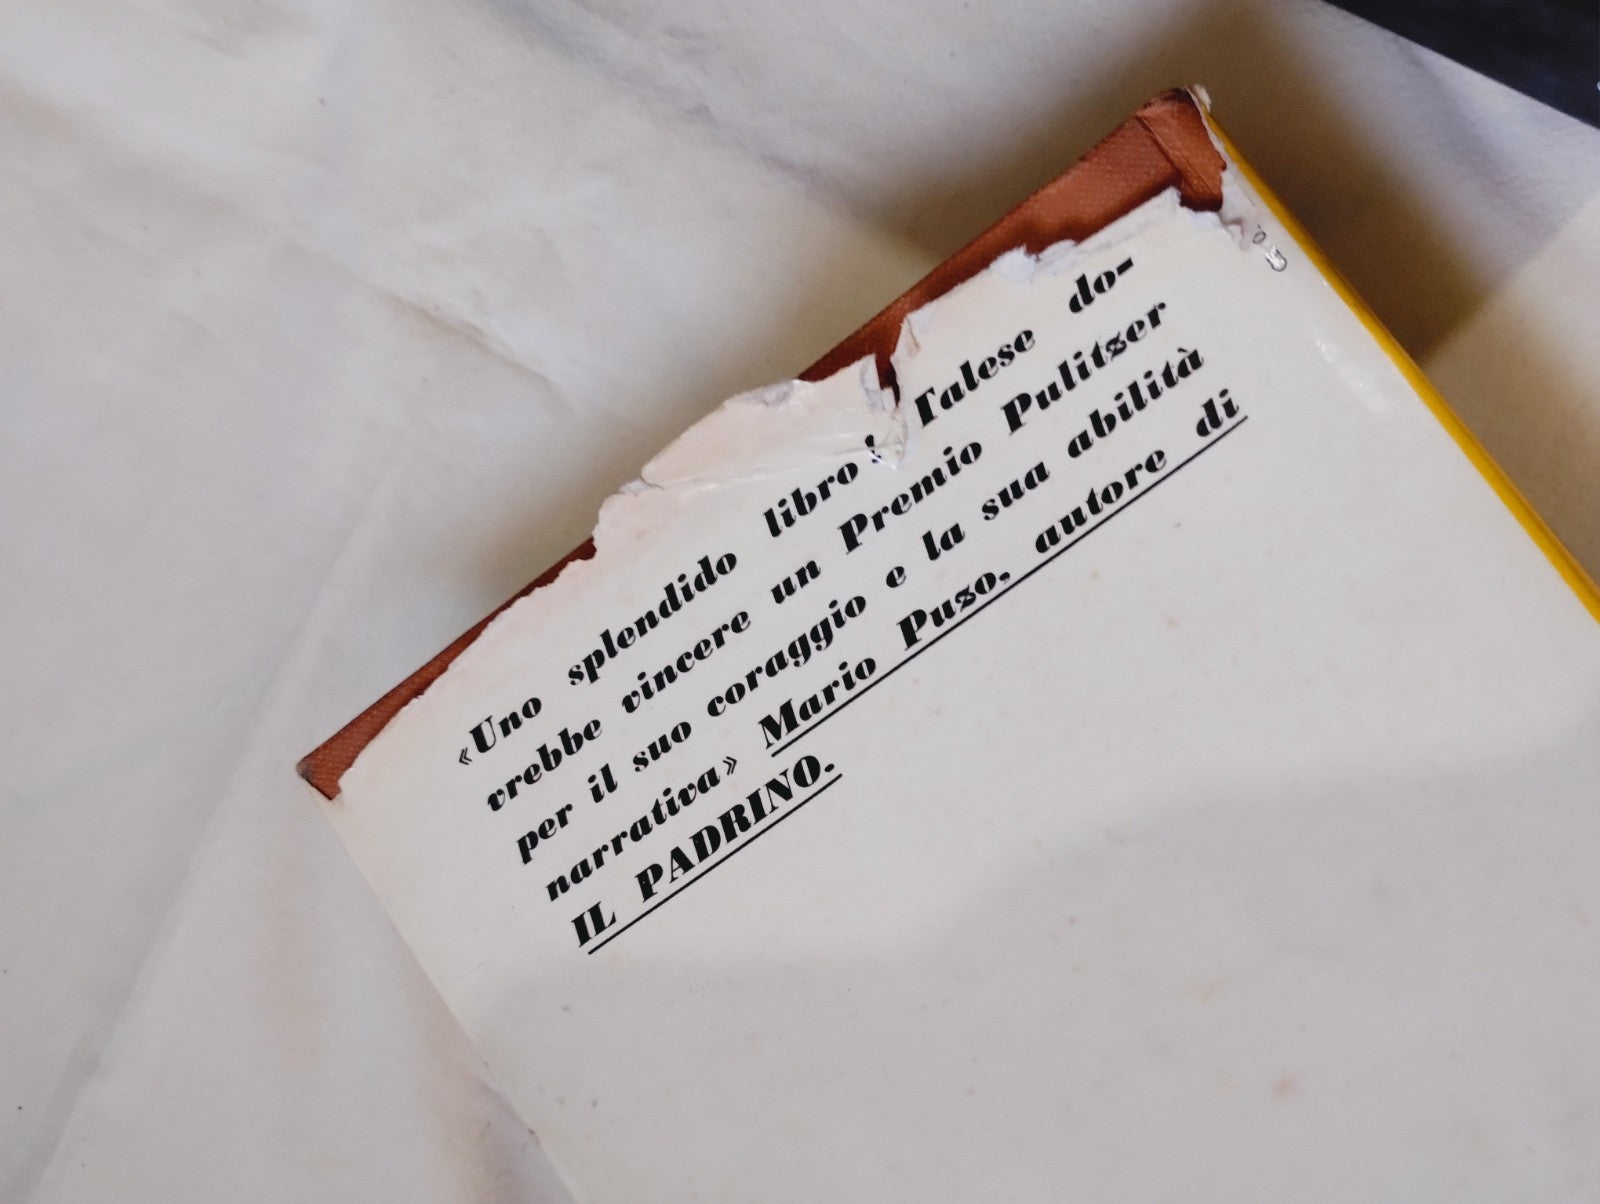 «Uno splendido libro! Talese do-
vrebbe vincere un Premio Pulitzer
per il suo coraggio e la sua abilità
narrativa» Mario Puzo, autore di
IL PADRINO.